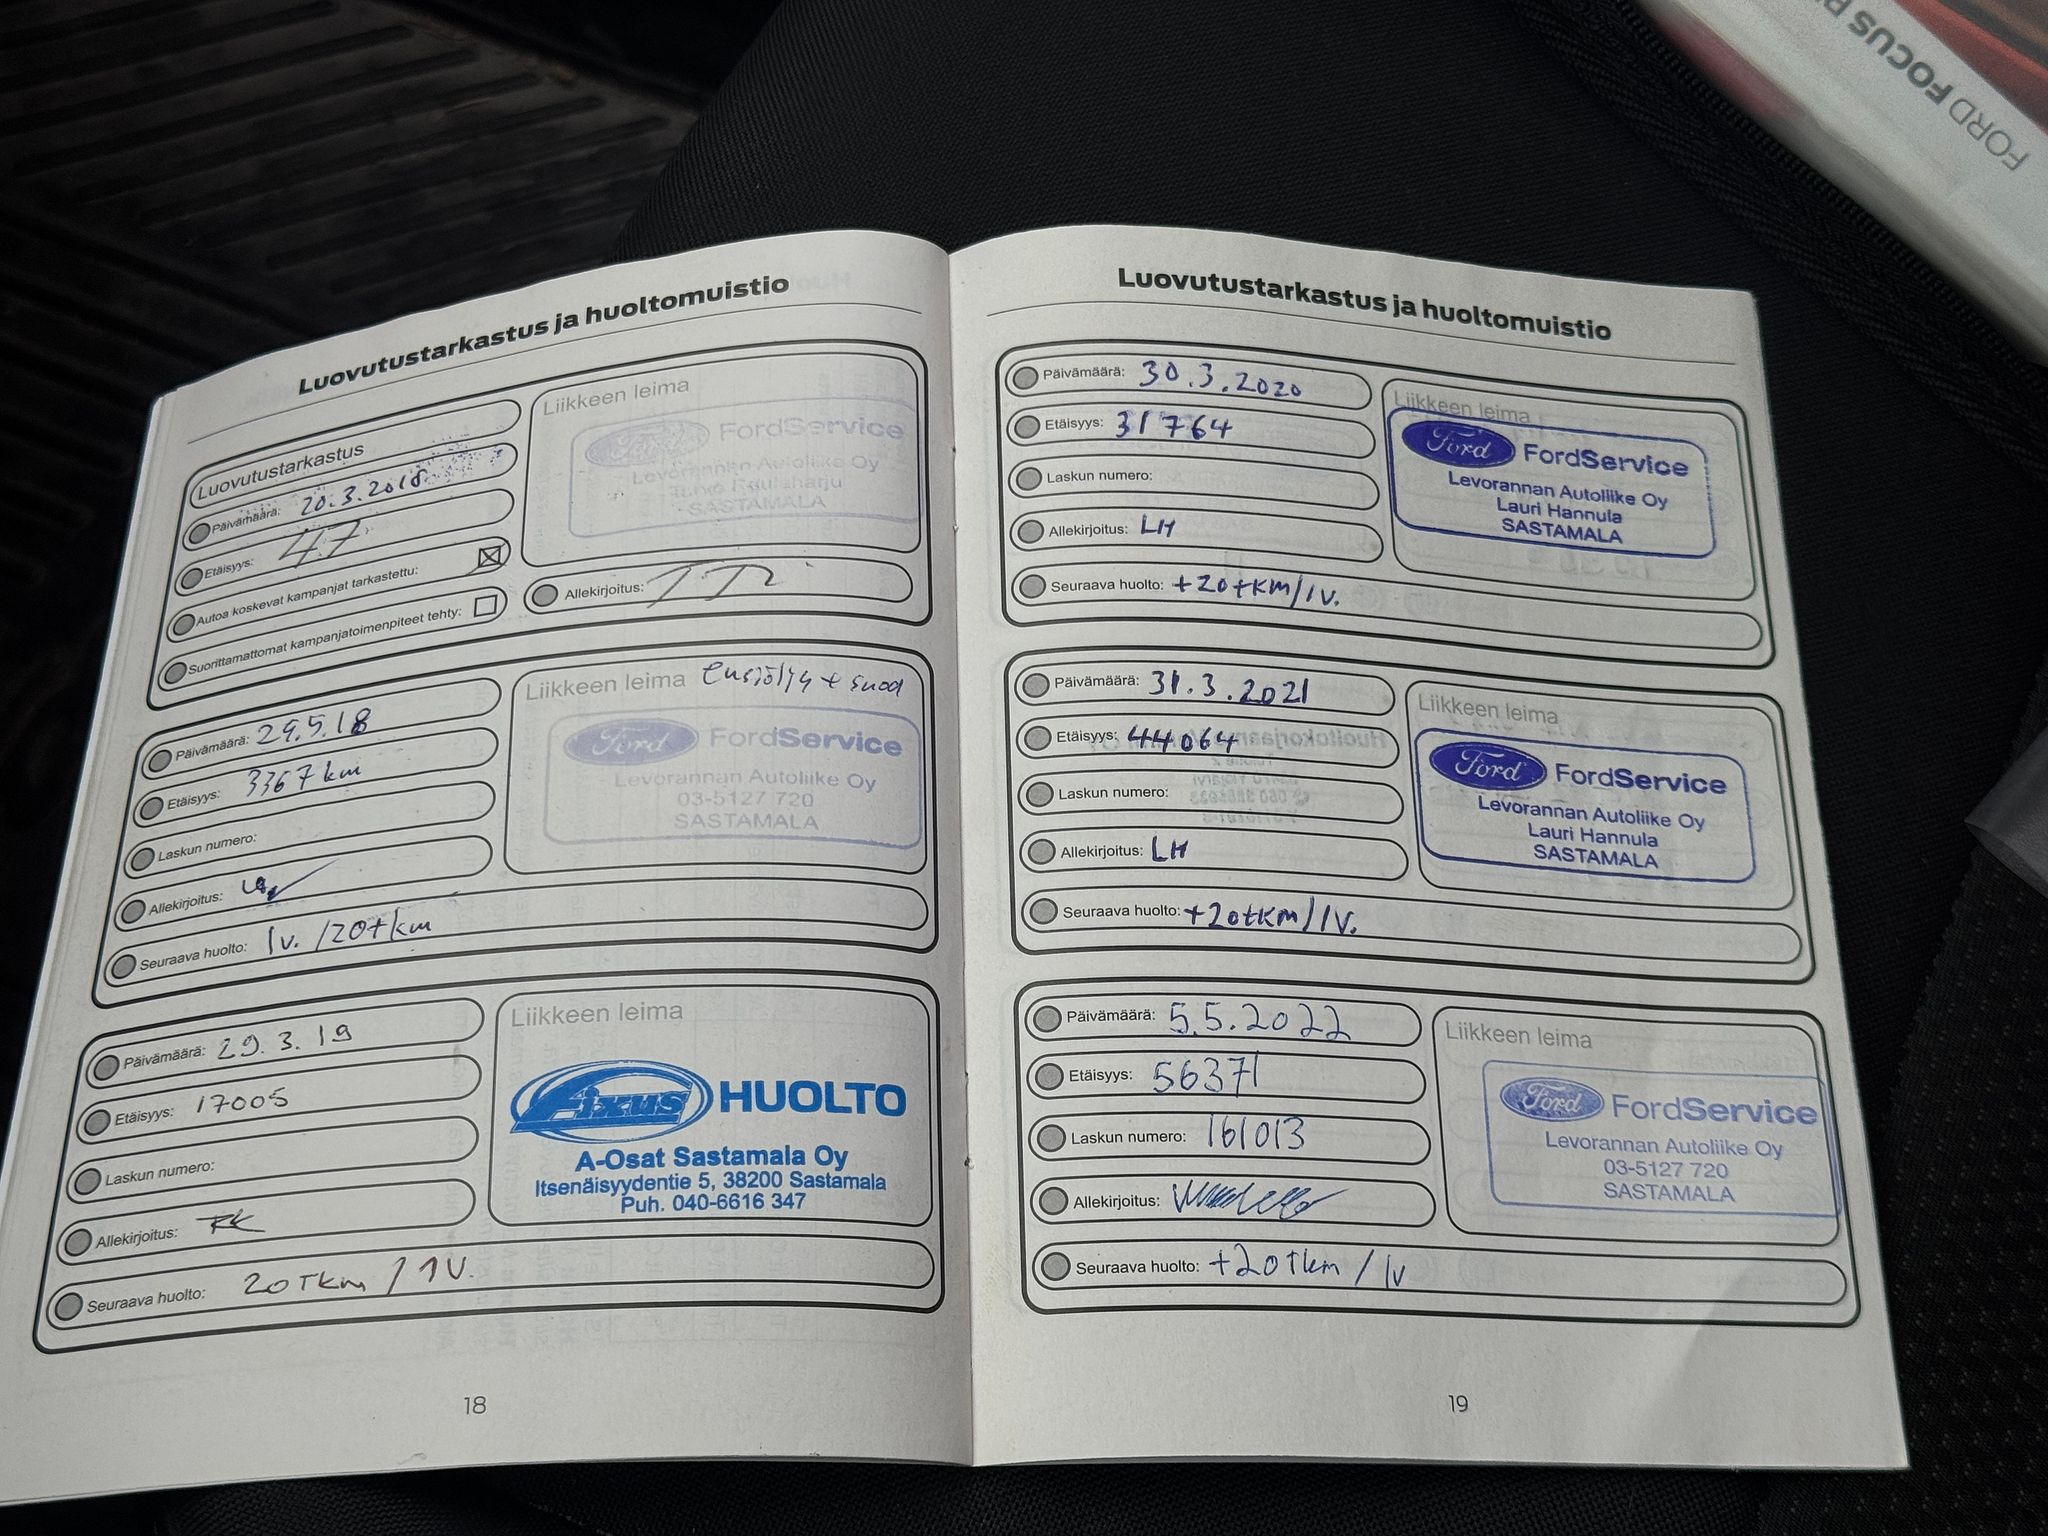 FORD FOCUS
Luovutustarkastus ja huoltomuistio
Luovutustarkastus
Päivämäärä: 20.3.2018
Etäisyys: 47
Autoa koskevat kampanjat tarkastettu:
Suorittamattomat kampanjatoimenpiteet tehty:
Liikkeen leima
Ford FordService
Levorannan Autoliike Oy
SASTAMALA
Allekirjoitus:
Päivämäärä: 29.5.18
Etäisyys: 3367 km
Laskun numero:
Allekirjoitus:
Seuraava huolto: 1v. /20tkm
Liikkeen leima ensiöljy + suod
Ford FordService
Levorannan Autoliike Oy
03-5127 720
SASTAMALA
Päivämäärä: 29.3.19
Etäisyys: 17005
Laskun numero:
Allekirjoitus:
Seuraava huolto: 20Tkm / 1V.
Liikkeen leima
Fixus HUOLTO
A-Osat Sastamala Oy
Itsenäisyydentie 5, 38200 Sastamala
Puh. 040-6616 347
18
Luovutustarkastus ja huoltomuistio
Päivämäärä: 30.3.2020
Etäisyys: 31764
Laskun numero:
Allekirjoitus: LH
Seuraava huolto: +20tkm/1v.
Liikkeen leima
Ford FordService
Levorannan Autoliike Oy
Lauri Hannula
SASTAMALA
Päivämäärä: 31.3.2021
Etäisyys: 44064
Laskun numero:
Allekirjoitus: LH
Seuraava huolto: +20tkm/1v.
Liikkeen leima
Ford FordService
Levorannan Autoliike Oy
Lauri Hannula
SASTAMALA
Päivämäärä: 5.5.2022
Etäisyys: 56371
Laskun numero: 161013
Allekirjoitus:
Seuraava huolto: +20Tkm / 1v
Liikkeen leima
Ford FordService
Levorannan Autoliike Oy
03-5127 720
SASTAMALA
19